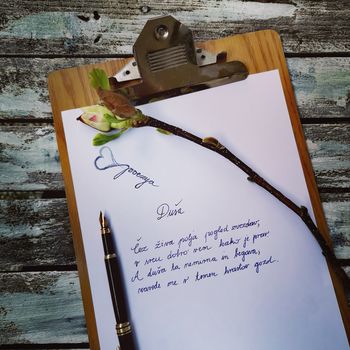 poezija
Duša
Čez živa polja pogled zvedav,
v srcu dobro vem kako je prav
A duša ta nemirna in begava,
zvande me v temen hrastov gozd.